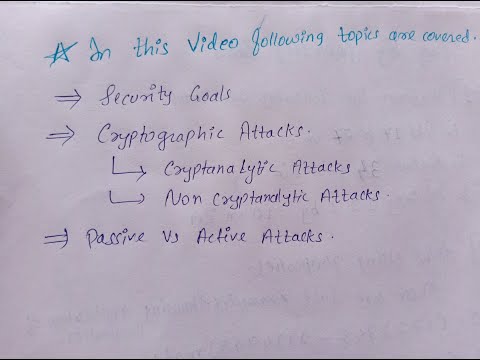 ☆ In this Video following topics are covered.
⇒ Security Goals
⇒ Cryptographic Attacks.
↳ Cryptanalytic Attacks
↳ Non Cryptanalytic Attacks.
⇒ Passive Vs Active Attacks.